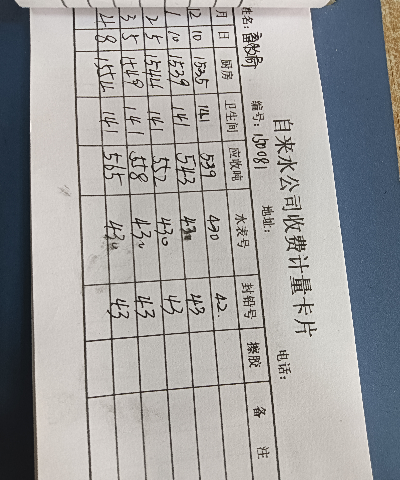 自来水公司收费计量卡片
姓名: 畜牧局 编号: 150081 地址: 电话:
月 日 厨房 卫生间 应收吨 水表号 封铅号 擦胶 备注
12 10 1535 141 539 430 42
1 10 1539 141 543 430 43
2 5 1544 141 552 430 43
3 5 1549 141 558 430 43
4 8 1554 141 565 430 43